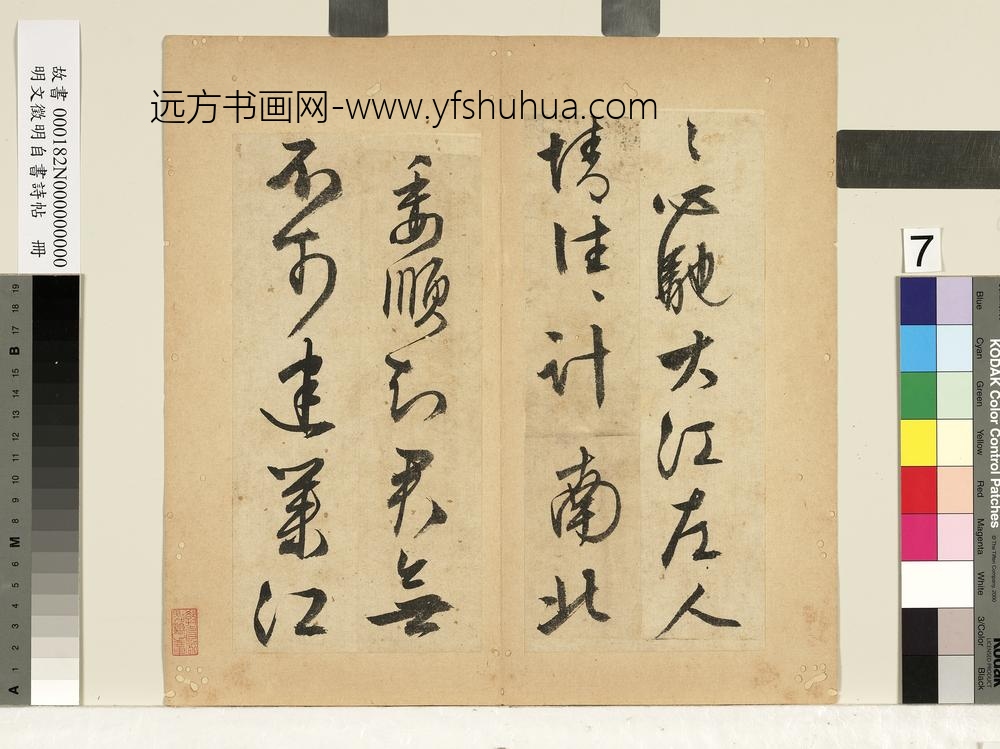 远方书画网-www.yfshuhua.com
故書 000182N000000000
明文徵明自書詩帖 冊
〻心馳大江左人
情往〻計南北
委順知君無
不可建業江
7
KODAK Color Control Patches
Blue
Cyan
Green
Yellow
Red
Magenta
White
3/Color
Black
Kodak
LICENSED PRODUCT
19
18
17
B
16
15
14
13
12
11
10
9
8
M
7
6
5
4
3
2
1
A